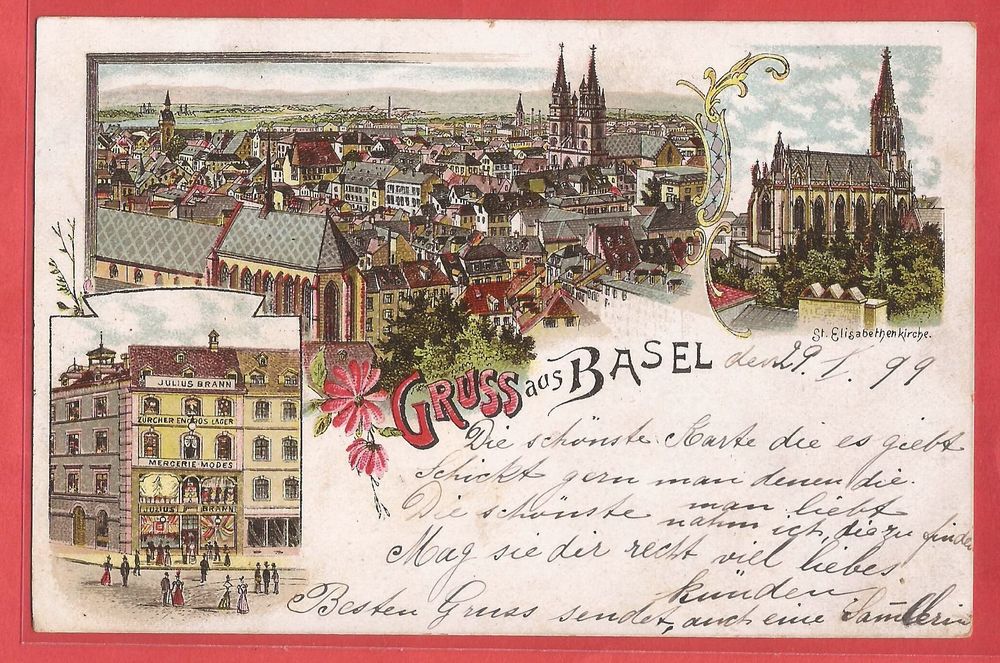 St. Elisabethenkirche.
JULIUS BRANN
ZÜRCHER ENGROS LAGER
MERCERIE MODES
JULIUS BRANN
GRUSS aus BASEL den 29. I. 99
Die schönste Karte die es giebt
Schickt gern man denen die
man liebt
Die schönste nahm ich, die zu finden
Mag sie dir recht viel liebes
künden
Besten Gruss sendet, auch eine Sam̅lerin